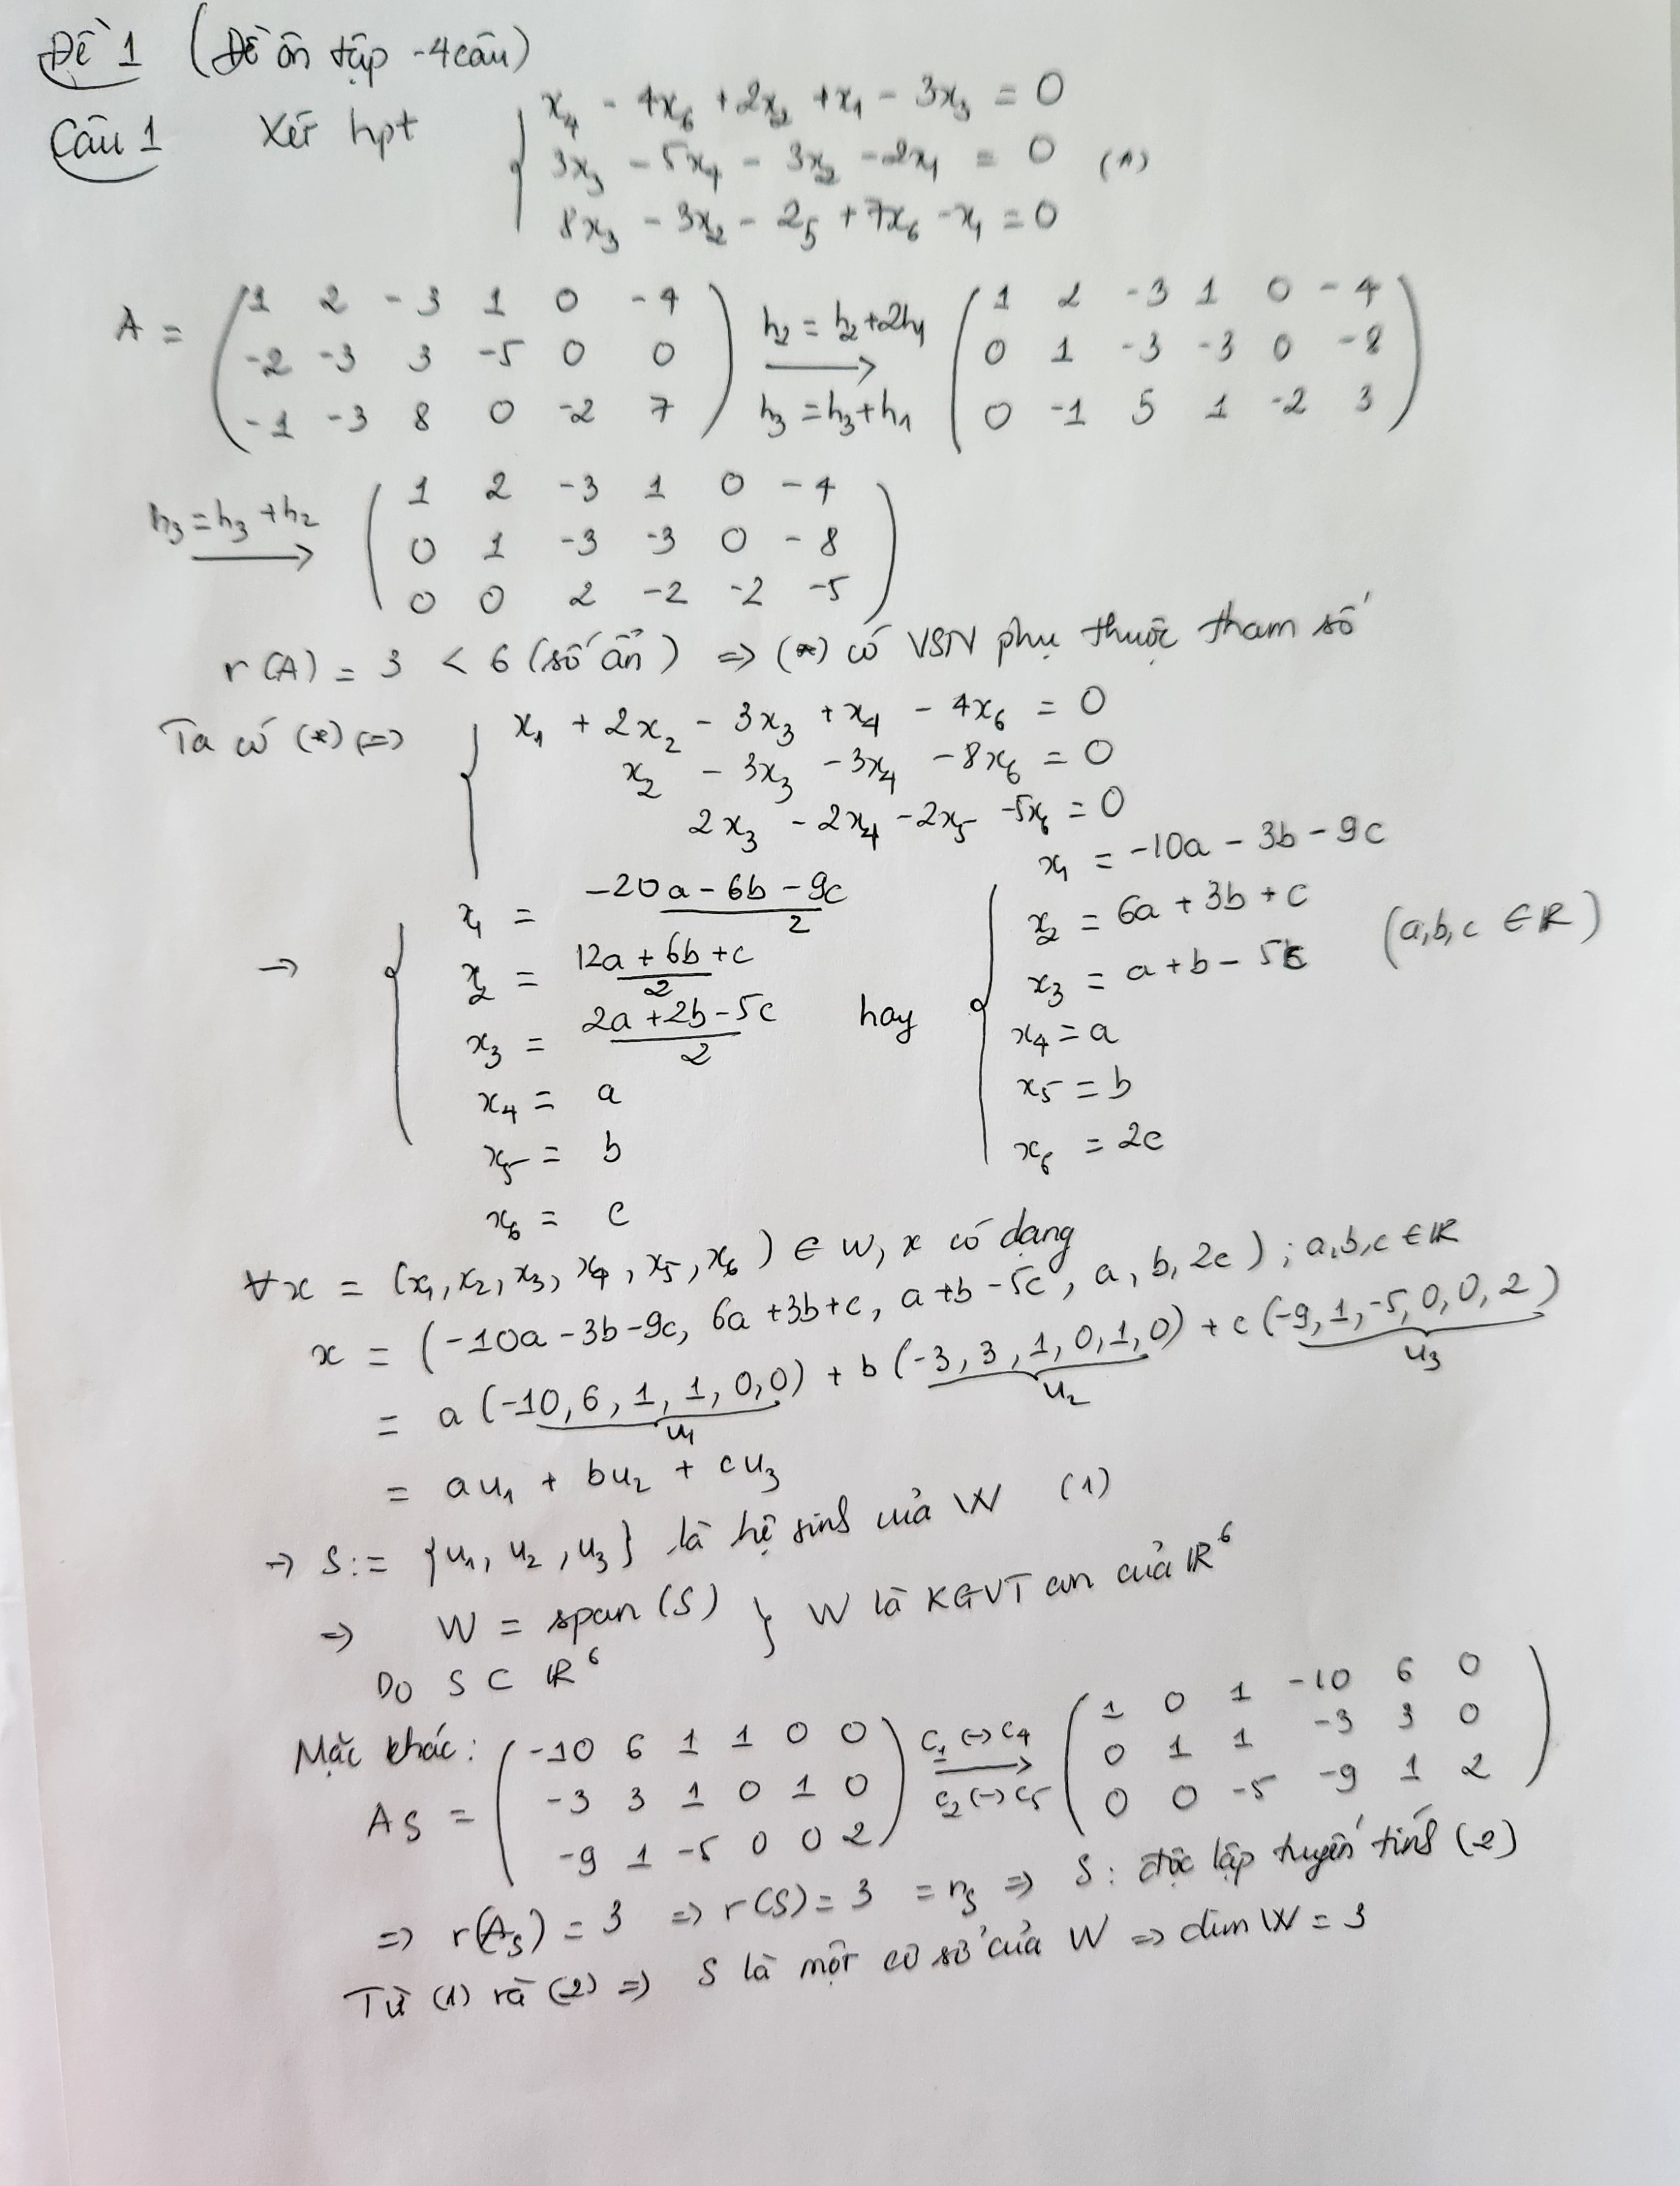 Đề 1 (Đề ôn tập -4 câu)
Câu 1 Xét hpt
x₄ - 4x₆ + 2x₂ + x₁ - 3x₃ = 0
3x₃ - 5x₄ - 3x₂ - 2x₁ = 0 (*)
8x₃ - 3x₂ - 2₅ + 7x₆ - x₁ = 0
A = ( 1 2 -3 1 0 -4 ) h₂ = h₂ + 2h₁ ( 1 2 -3 1 0 -4 )
( -2 -3 3 -5 0 0 ) → ( 0 1 -3 -3 0 -8 )
( -1 -3 8 0 -2 7 ) h₃ = h₃ + h₁ ( 0 -1 5 1 -2 3 )
h₃ = h₃ + h₂ → ( 1 2 -3 1 0 -4 )
( 0 1 -3 -3 0 -8 )
( 0 0 2 -2 -2 -5 )
r(A) = 3 < 6 (số ẩn) => (*) có VSN phụ thuộc tham số
Ta có (*) <=> x₁ + 2x₂ - 3x₃ + x₄ - 4x₆ = 0
x₂ - 3x₃ - 3x₄ - 8x₆ = 0
2x₃ - 2x₄ - 2x₅ - 5x₆ = 0
→ x₁ = (-20a - 6b - 9c)/2 hay x₁ = -10a - 3b - 9c
x₂ = (12a + 6b + c)/2 x₂ = 6a + 3b + c (a,b,c ∈ ℝ)
x₃ = (2a + 2b - 5c)/2 x₃ = a + b - 5c
x₄ = a x₄ = a
x₅ = b x₅ = b
x₆ = c x₆ = 2c
∀x = (x₁, x₂, x₃, x₄, x₅, x₆) ∈ W, x có dạng
x = (-10a - 3b - 9c, 6a + 3b + c, a + b - 5c, a, b, 2c) ; a,b,c ∈ ℝ
= a(-10, 6, 1, 1, 0, 0) + b(-3, 3, 1, 0, 1, 0) + c(-9, 1, -5, 0, 0, 2)
u₁ u₂ u₃
= au₁ + bu₂ + cu₃
→ S := {u₁, u₂, u₃} là hệ sinh của W (1)
=> W = span(S) } W là KGVT con của ℝ⁶
Do S ⊂ ℝ⁶
Mặc khác:
A_S = ( -10 6 1 1 0 0 ) c₁ <-> c₄ ( 1 0 1 -10 6 0 )
( -3 3 1 0 1 0 ) → ( 0 1 1 -3 3 0 )
( -9 1 -5 0 0 2 ) c₂ <-> c₅ ( 0 0 -5 -9 1 2 )
=> r(A_S) = 3 => r(S) = 3 = n_S => S: độc lập tuyến tính (2)
Từ (1) và (2) => S là một cơ sở của W => dim W = 3